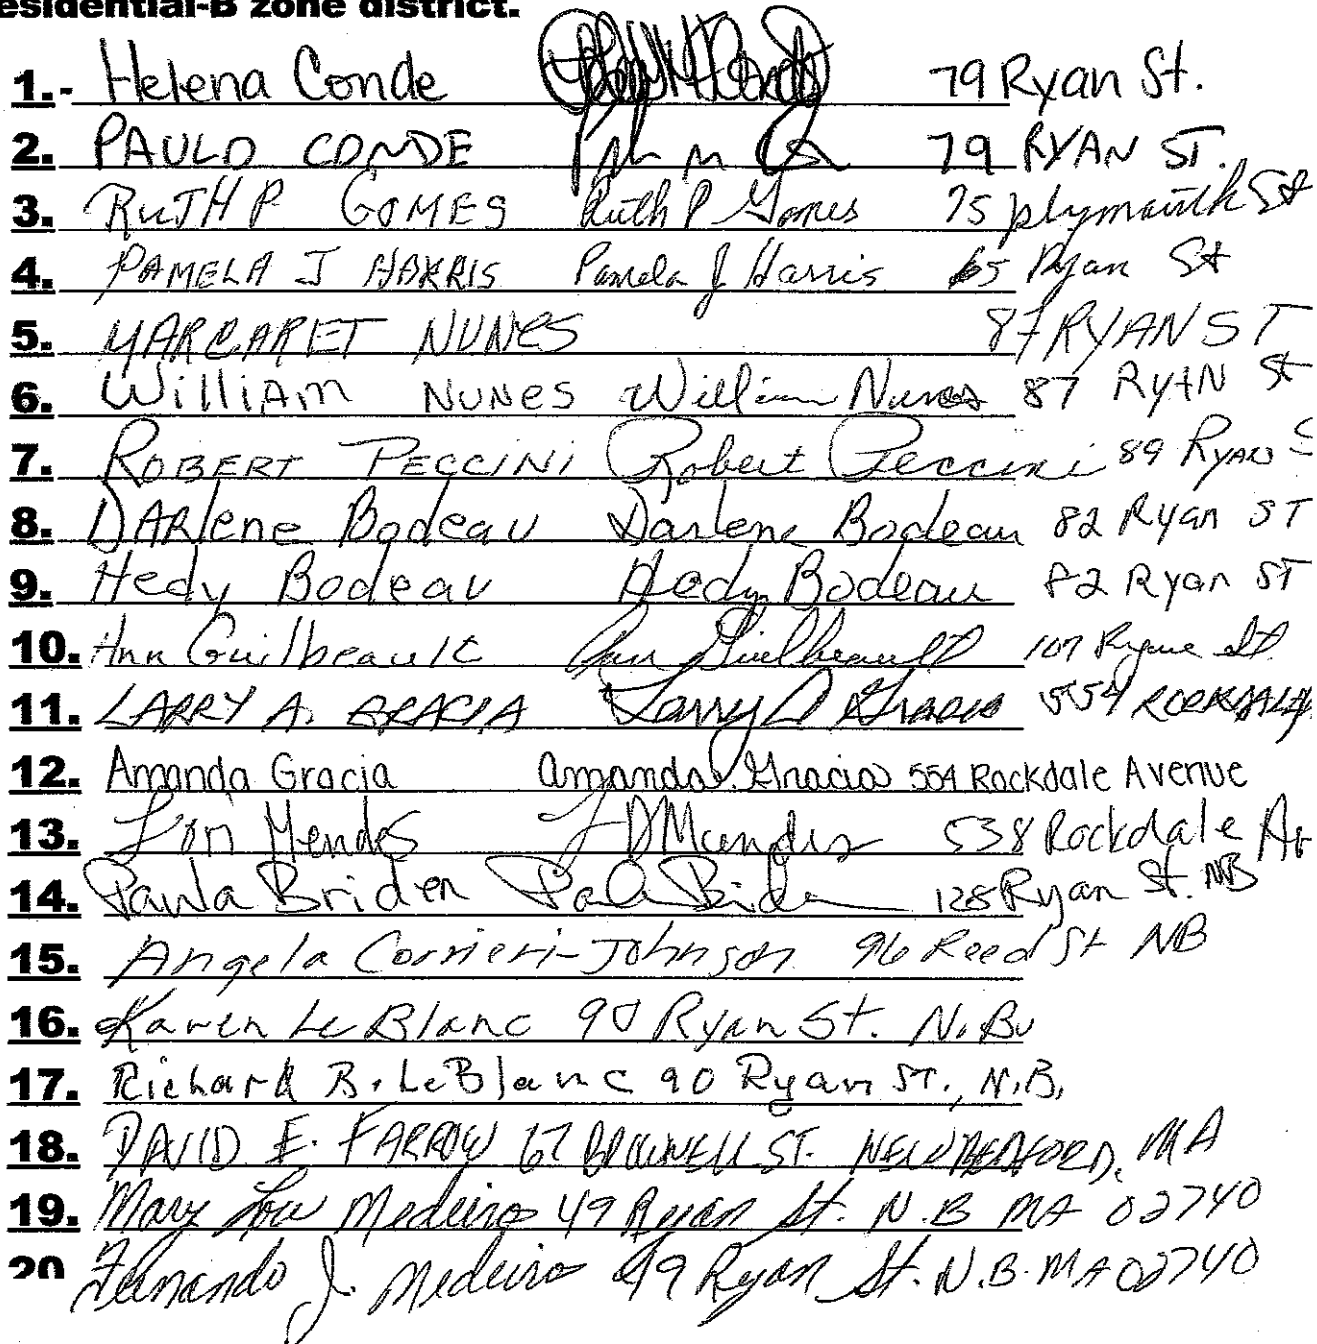 esidential-B zone district.
1.- Helena Conde 79 Ryan St.
2. PAULO CONDE 79 RYAN ST.
3. RUTH P GOMES Ruth P Gomes 75 plymouth St
4. PAMELA J HARRIS Pamela J Harris 65 Ryan St
5. MARGARET NUNES 87 RYAN ST
6. William NUNES William Nunes 87 RYAN St
7. ROBERT PECCINI Robert Peccini 89 RYAN S
8. DARlene Bodeau Darlene Bodeau 82 Ryan ST
9. Hedy Bodeau Hedy Bodeau 82 Ryan ST
10. Ann Guilbeault Ann Guilbeault 107 St.
11. LARRY A. GRACIA Larry A Gracia 554 ROCKDALE
12. Amanda Gracia Amanda Gracia 554 Rockdale Avenue
13. Lori Mendes 538 Rockdale Av
14. Paula Briden 128 Ryan St. NB
15. Angela Corrieri-Johnson 96 Reed St NB
16. Karen LeBlanc 90 Ryan St. N.B.
17. Richard B. LeBlanc 90 Ryan ST., N.B.
18. DAVID E. FARROW 67 BROWNELL ST. NEW BEDFORD, MA
19. Mary Lou Medeiros 49 Ryan St. N.B MA 02740
20 Fernando J. Medeiros 49 Ryan St. N.B. MA 02740